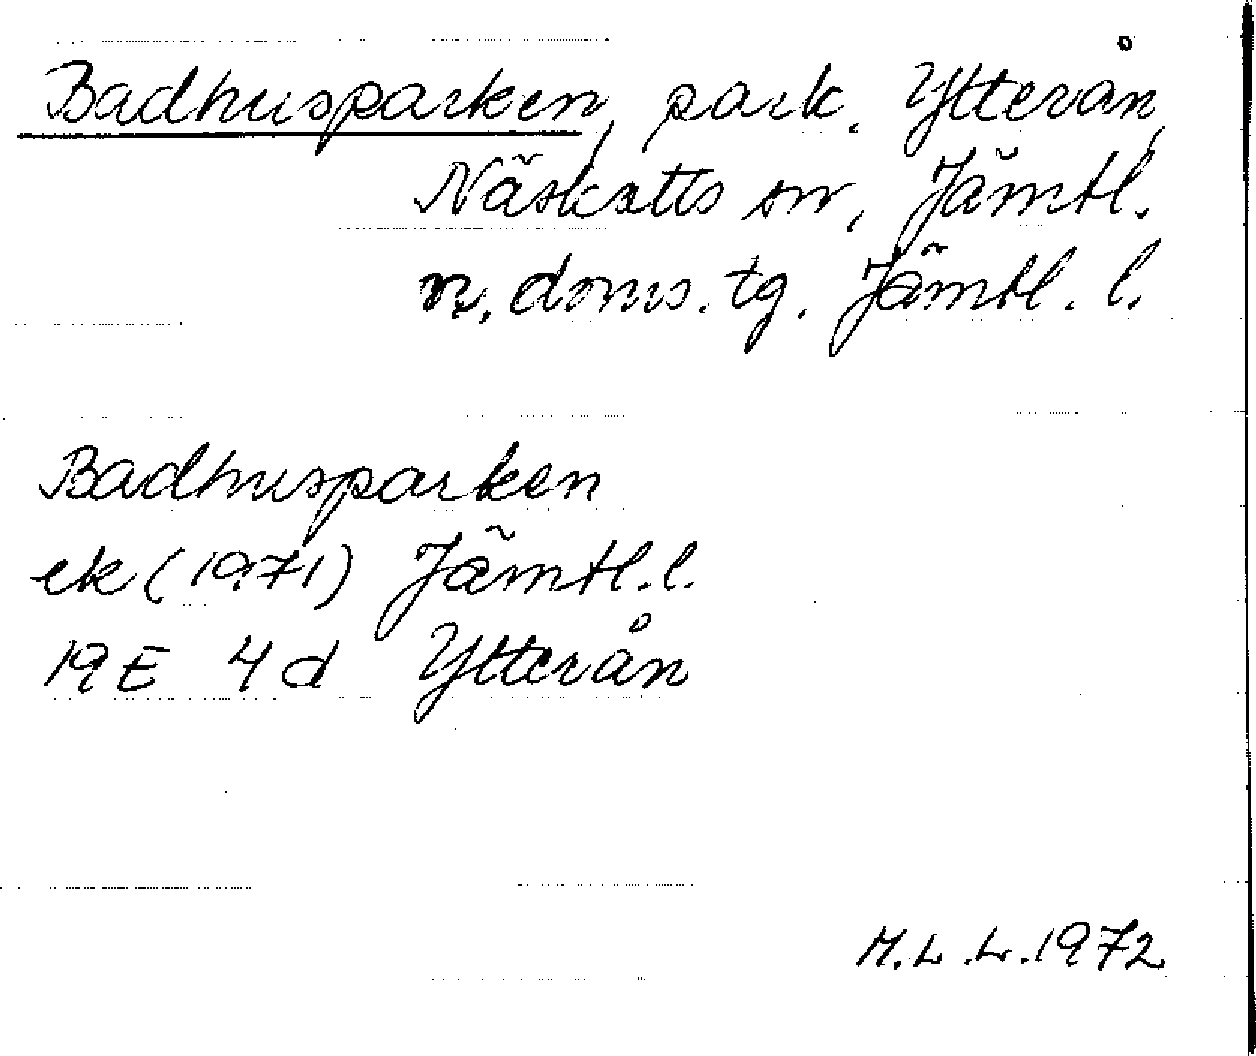 Badhusparken, park, Ytterån,
Näskotts sn, Jämtl.
v. doms. tg. Jämtl. l.
Badhusparken
ek (1971) Jämtl. l.
19 E 4 d Ytterån
M.L.L. 1972